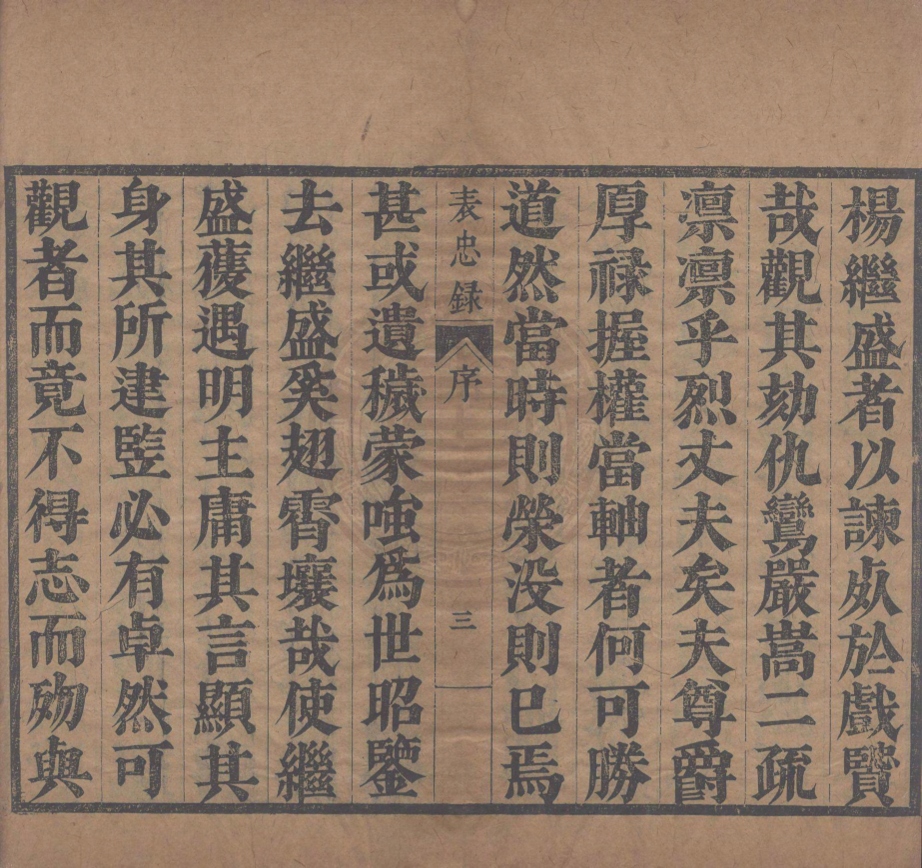 楊繼盛者以諫死於戲賢
哉觀其劾仇鸞嚴嵩二疏
凛凛乎烈丈夫矣夫尊爵
厚祿握權當軸者何可勝
道然當時則榮没則已焉
表忠録 序 三
甚或遺穢蒙嗤爲世昭鑒
去繼盛奚翅霄壤哉使繼
盛獲遇明主庸其言顯其
身其所建竪必有卓然可
觀者而竟不得志而歾與